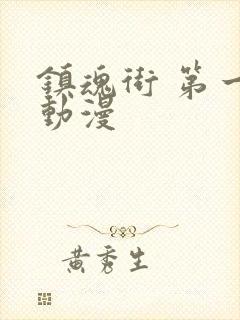 鎮魂街 第一
動漫
黃秀生